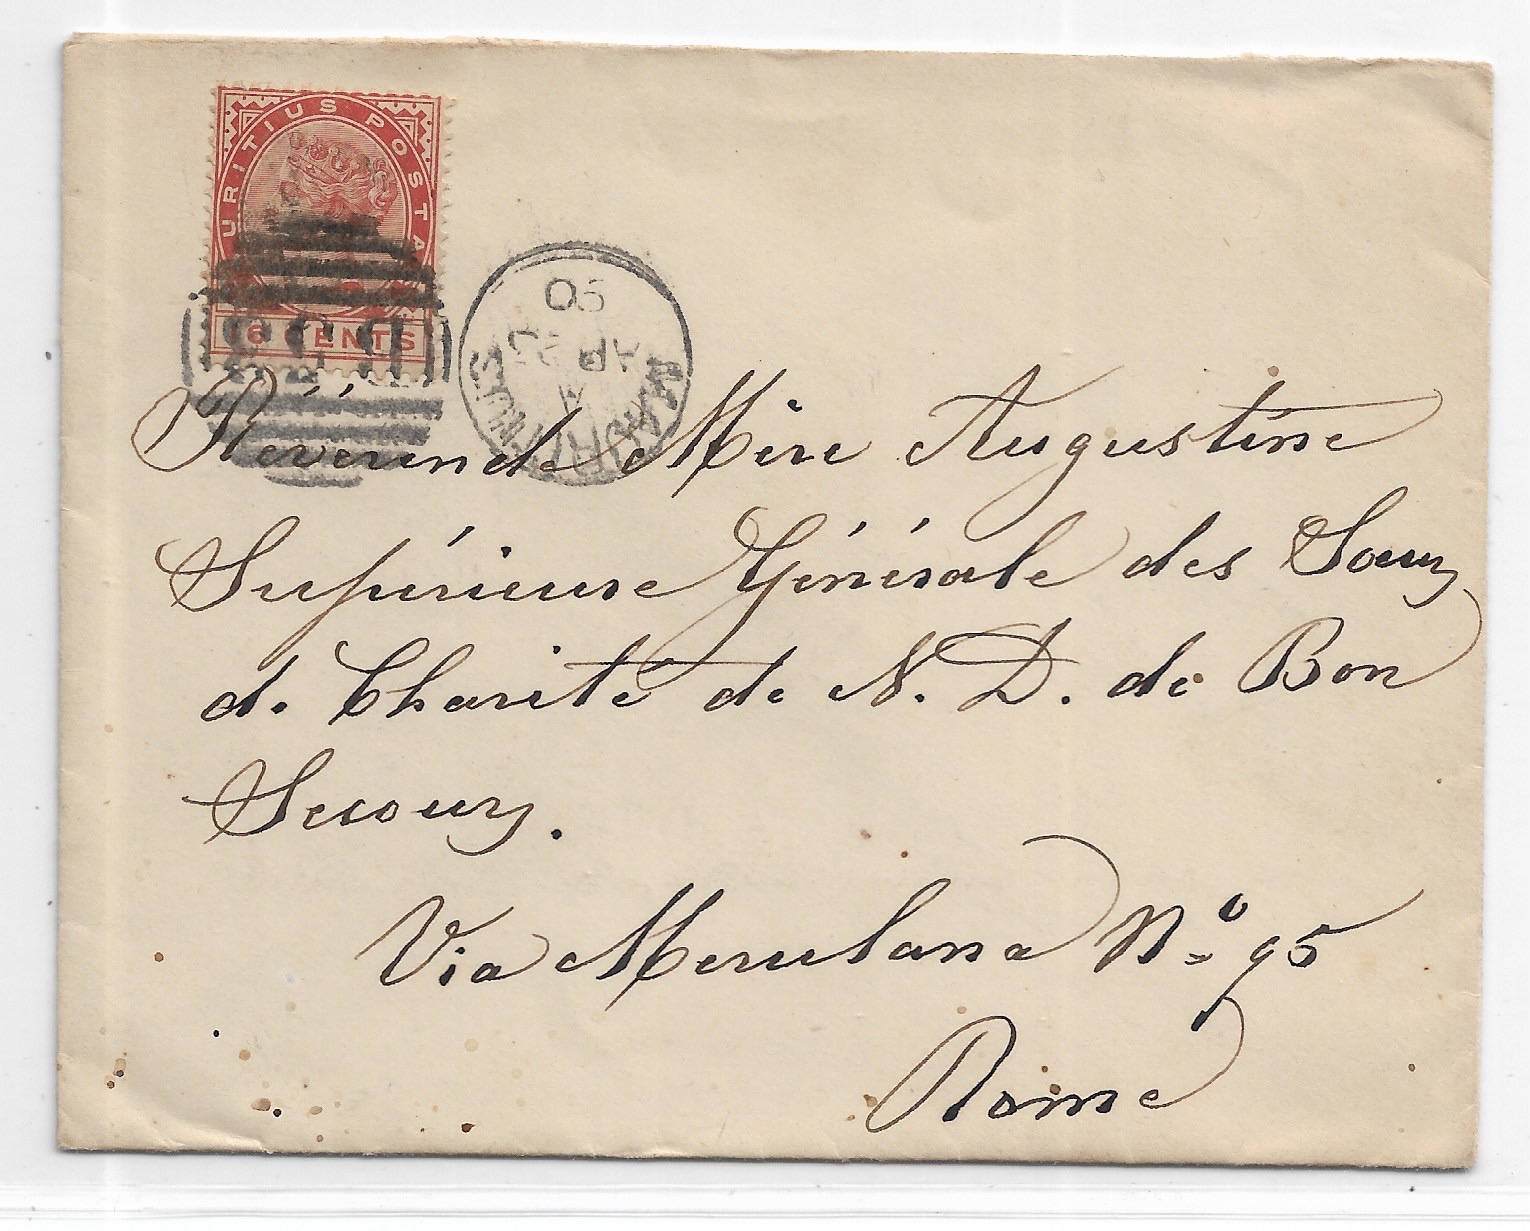 MAURITIUS POSTAGE
16 CENTS
B53
MAURITIUS
A
AP 23
90
Révérende Mère Augustine
Supérieure Générale des Sœurs
de Charité de N. D. de Bon
Secours.
Via Merulana Nº 95
Rome